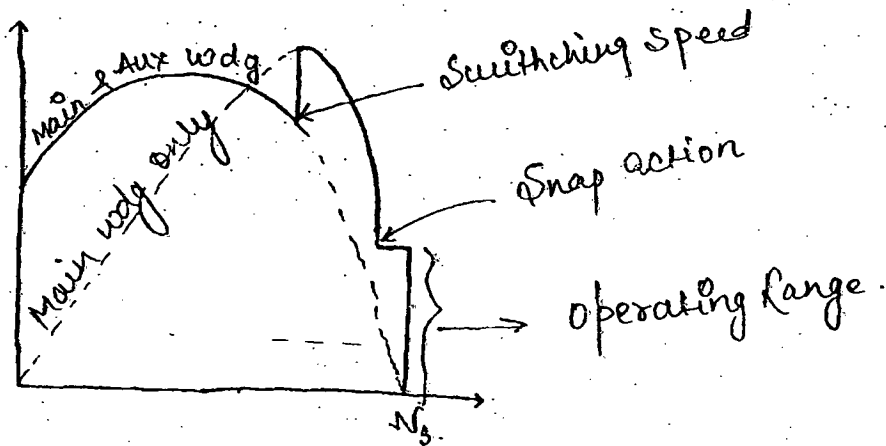 Main & Aux wdg
Main wdg only
Swithching speed
Snap action
Operating Range.
Ns.